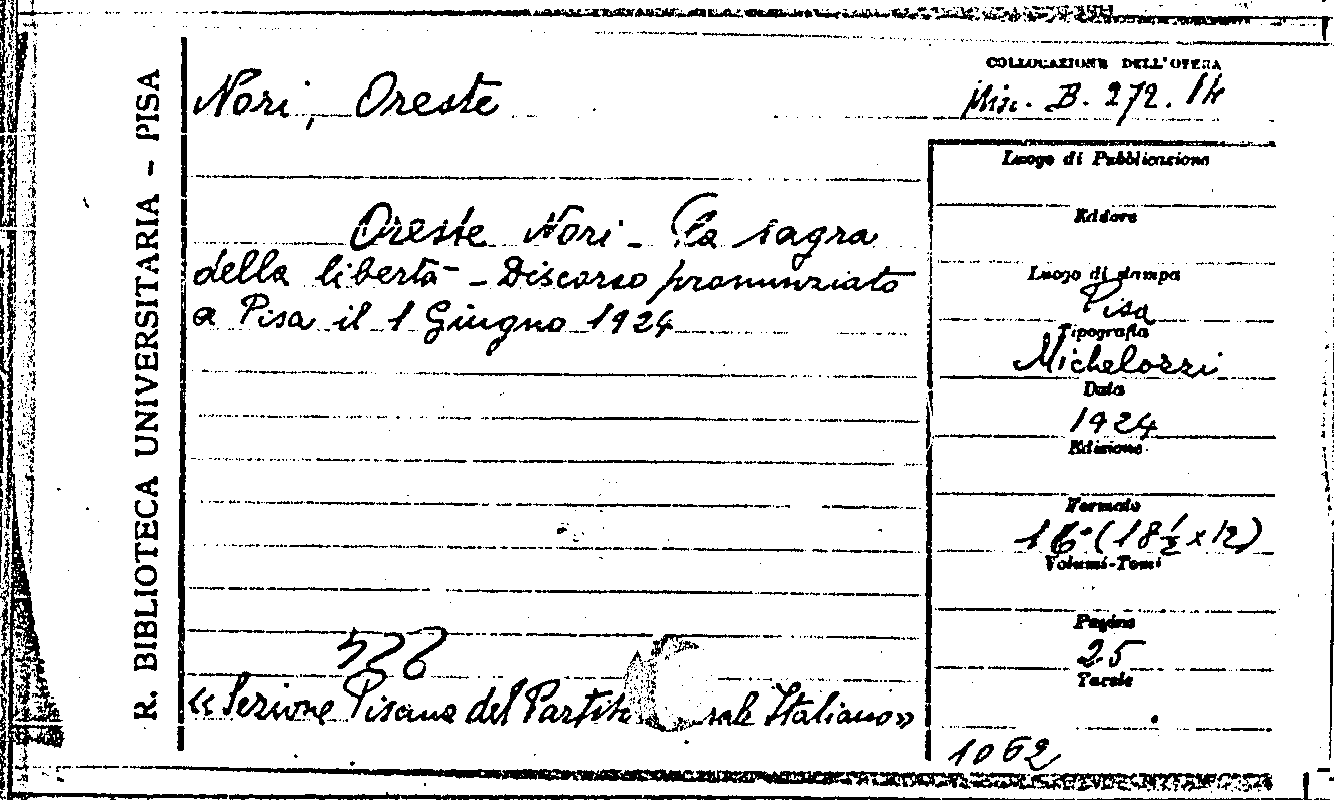 R. BIBLIOTECA UNIVERSITARIA - PISA
Nori, Oreste
COLLOCAZIONE DELL'OPERA
Misc. B. 272. 14
Oreste Nori - La sagra
della libertà - Discorso pronunziato
a Pisa il 1 Giugno 1924
«Sezione Pisana del Partito rale Italiano»
Luogo di Pubblicazione
Editore
Luogo di stampa
Pisa
Tipografia
Michelozzi
Data
1924
Edizione
Formato
16° (18½ x 12)
Volumi-Tomi
Pagine
25
Tavole
1062